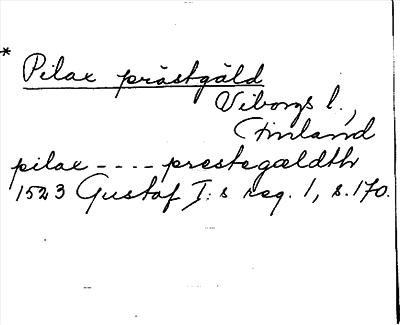 * Pilax prästgäld
Viborgs l.,
Finland
pilax - - - - prestegældth
1523 Gustaf I:s reg. 1, s. 170.